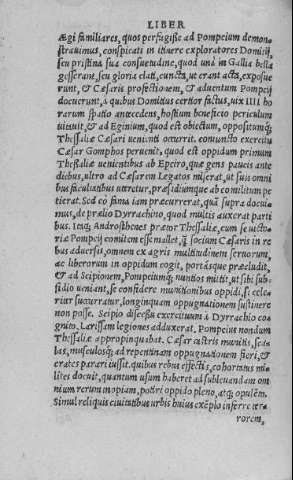 LIBER
Ægi familiares, quos perfugisse ad Pompeium demon
strauimus, conspicati in itinere exploratores Domitij,
seu pristina sua consuetudine, quod unà in Gallia bella
gesserant, seu gloria elati, cuncta, ut erant acta, exposue
runt, & Cæsaris profectionem, & aduentum Pompeij
docuerunt, à quibus Domitius certior factus, uix IIII ho
rarum spatio antecedens, hostium beneficio periculum
uitauit, & ad Eginium, quod est obiectum, oppositumq́;
Thessaliæ Cæsari uenienti occurrit. coniuncto exercitu
Cæsar Gomphos peruenit, quod est oppidum primum
Thessaliæ uenientibus ab Epeiro, quæ gens paucis ante
diebus, ultro ad Cæsarem Legatos miserat, ut suis omni
bus facultatibus uteretur, præsidiumque ab eo militum pe
tierat. Sed eò fama iam præcurrerat, quā supra docui-
mus, de prælio Dyrrachino, quod multis auxerat parti
bus. Itaq; Androsthenes prætor Thessaliæ, cum se uicto-
riæ Pompeij comitem esse mallet, q̄ socium Cæsaris in re
bus aduersis, omnem ex agris multitudinem seruorum,
ac liberorum in oppidum cogit, portasque præcludit,
& ad Scipionem, Pompeiumq́; nuntios mittit, ut sibi sub-
sidio ueniant, se confidere munitionibus oppidi, si cele-
riter succurratur, longinquam oppugnationem sustinere
non posse. Scipio discessu exercituum à Dyrrachio co-
gnito, Larissam legiones adduxerat. Pompeius nondum
Thessaliæ appropinquabat. Cæsar castris munitis, sca-
las, musculosq́; ad repentinam oppugnationem fieri, &
crates parari iussit. quibus rebus effectis, cohortatus mi-
lites docuit, quantum usum haberet ad subleuandam om
nium rerum inopiam, potiri oppido pleno, atq; opulēto.
Simul reliquis ciuitatibus urbis huius exēplo inferre ter-
rorem,